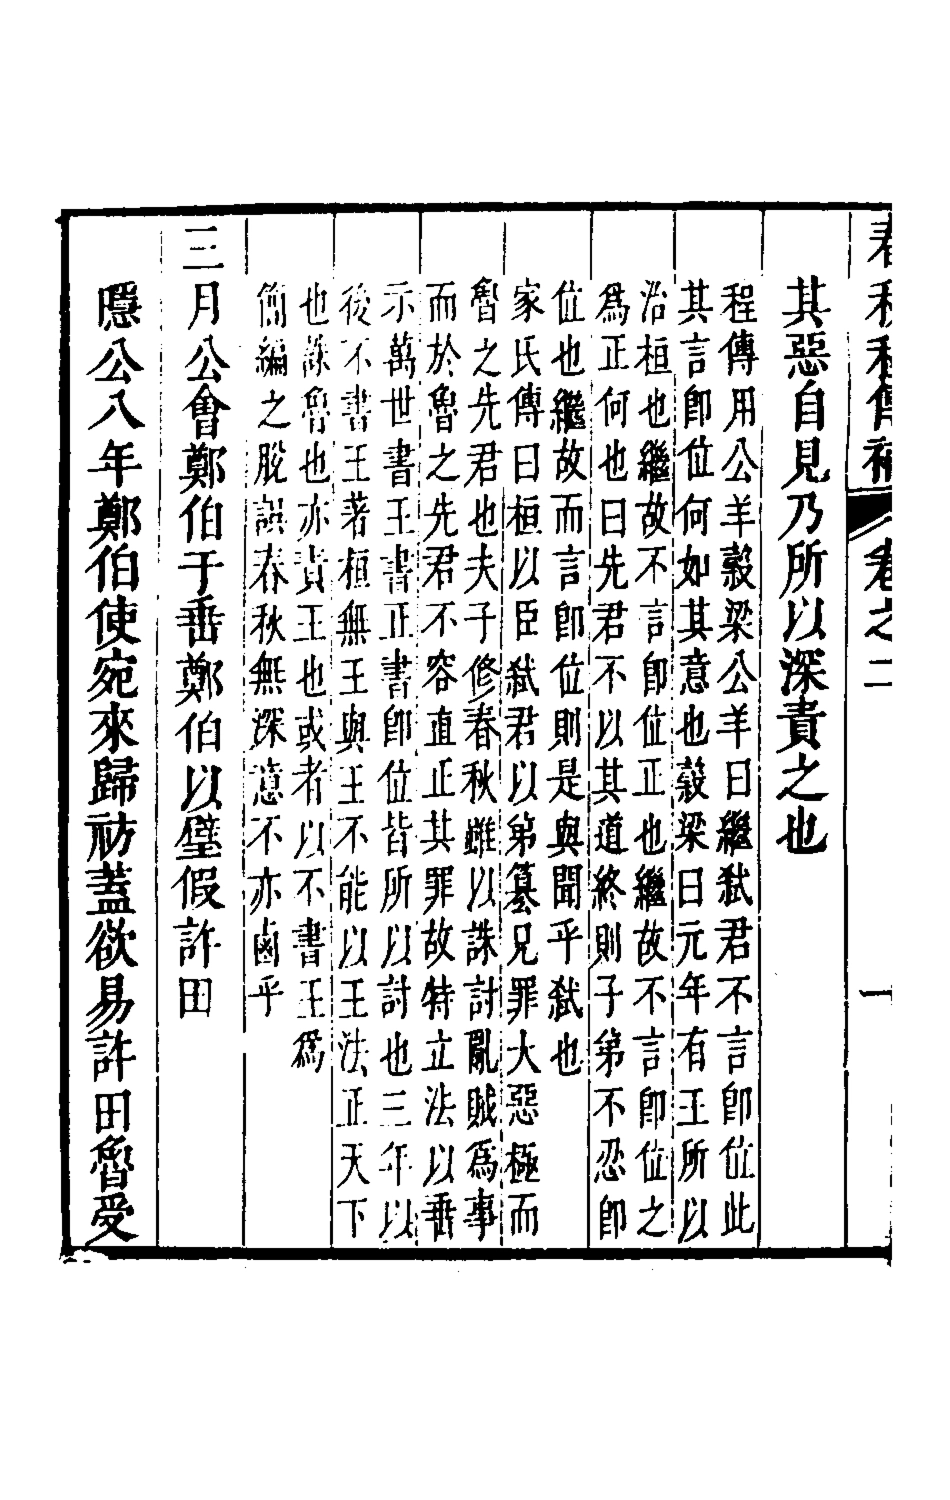 春秋程傳補 卷之二 一
其惡自見乃所以深責之也
程傳用公羊穀梁公羊曰繼弑君不言卽位此
其言卽位何如其意也穀梁曰元年有王所以
治桓也繼故不言卽位正也繼故不言卽位之
爲正何也曰先君不以其道終則子弟不忍卽
位也繼故而言卽位則是與聞乎弑也
家氏傳曰桓以臣弑君以弟簒兄罪大惡極而
魯之先君也夫子修春秋雖以誅討亂賊爲事
而於魯之先君不容直正其罪故特立法以垂
示萬世書王書正書卽位皆所以討也三年以
後不書王著桓無王與王不能以王法正天下
也誅魯也亦責王也或者以不書王爲
簡編之脫誤春秋無深意不亦鹵乎
三月公會鄭伯于垂鄭伯以璧假許田
隱公八年鄭伯使宛來歸祊蓋欲易許田魯受